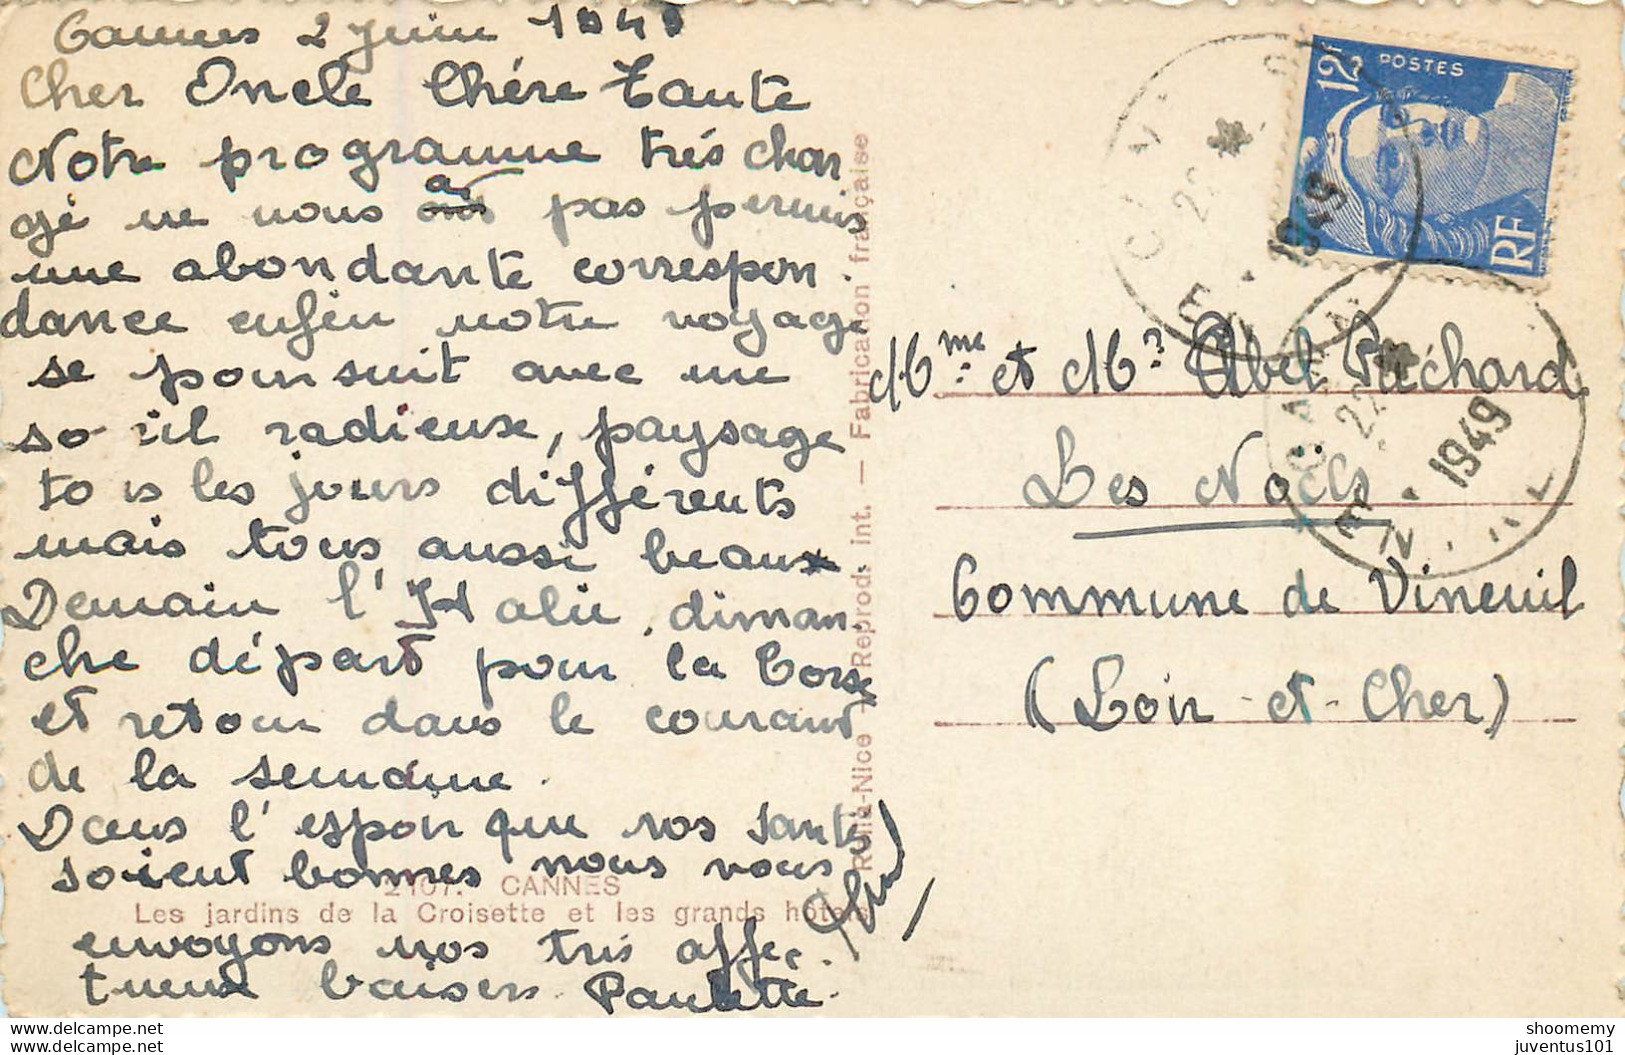 Cannes 2 juin 1949
Cher Oncle Chére Tante
Notre programme trés char
gé ne nous a pas permis
une abondante correspon
dance enfin notre voyage
se poursuit avec un
soleil radieuse, paysage
tous les jours différents
mais tous aussi beaux
Demain l'Italie, diman.
che départ pour la Corse
et retour dans le courant
de la semaine.
Dans l'espoir que vos santés
soient bonnes nous vous
2107. CANNES
Les jardins de la Croisette et les grands hôtels
envoyons nos trés affec.
tueux baisers Paulette.
Rolla-Nice Reprod. int. — Fabrication française
12F POSTES
RF
1949
Mme et Mr Abel Préchard
Les Noëls
Commune de Vineuil
(Loir-et-Cher)
1949
delcampe.net
juventus101
shoomemy
juventus101